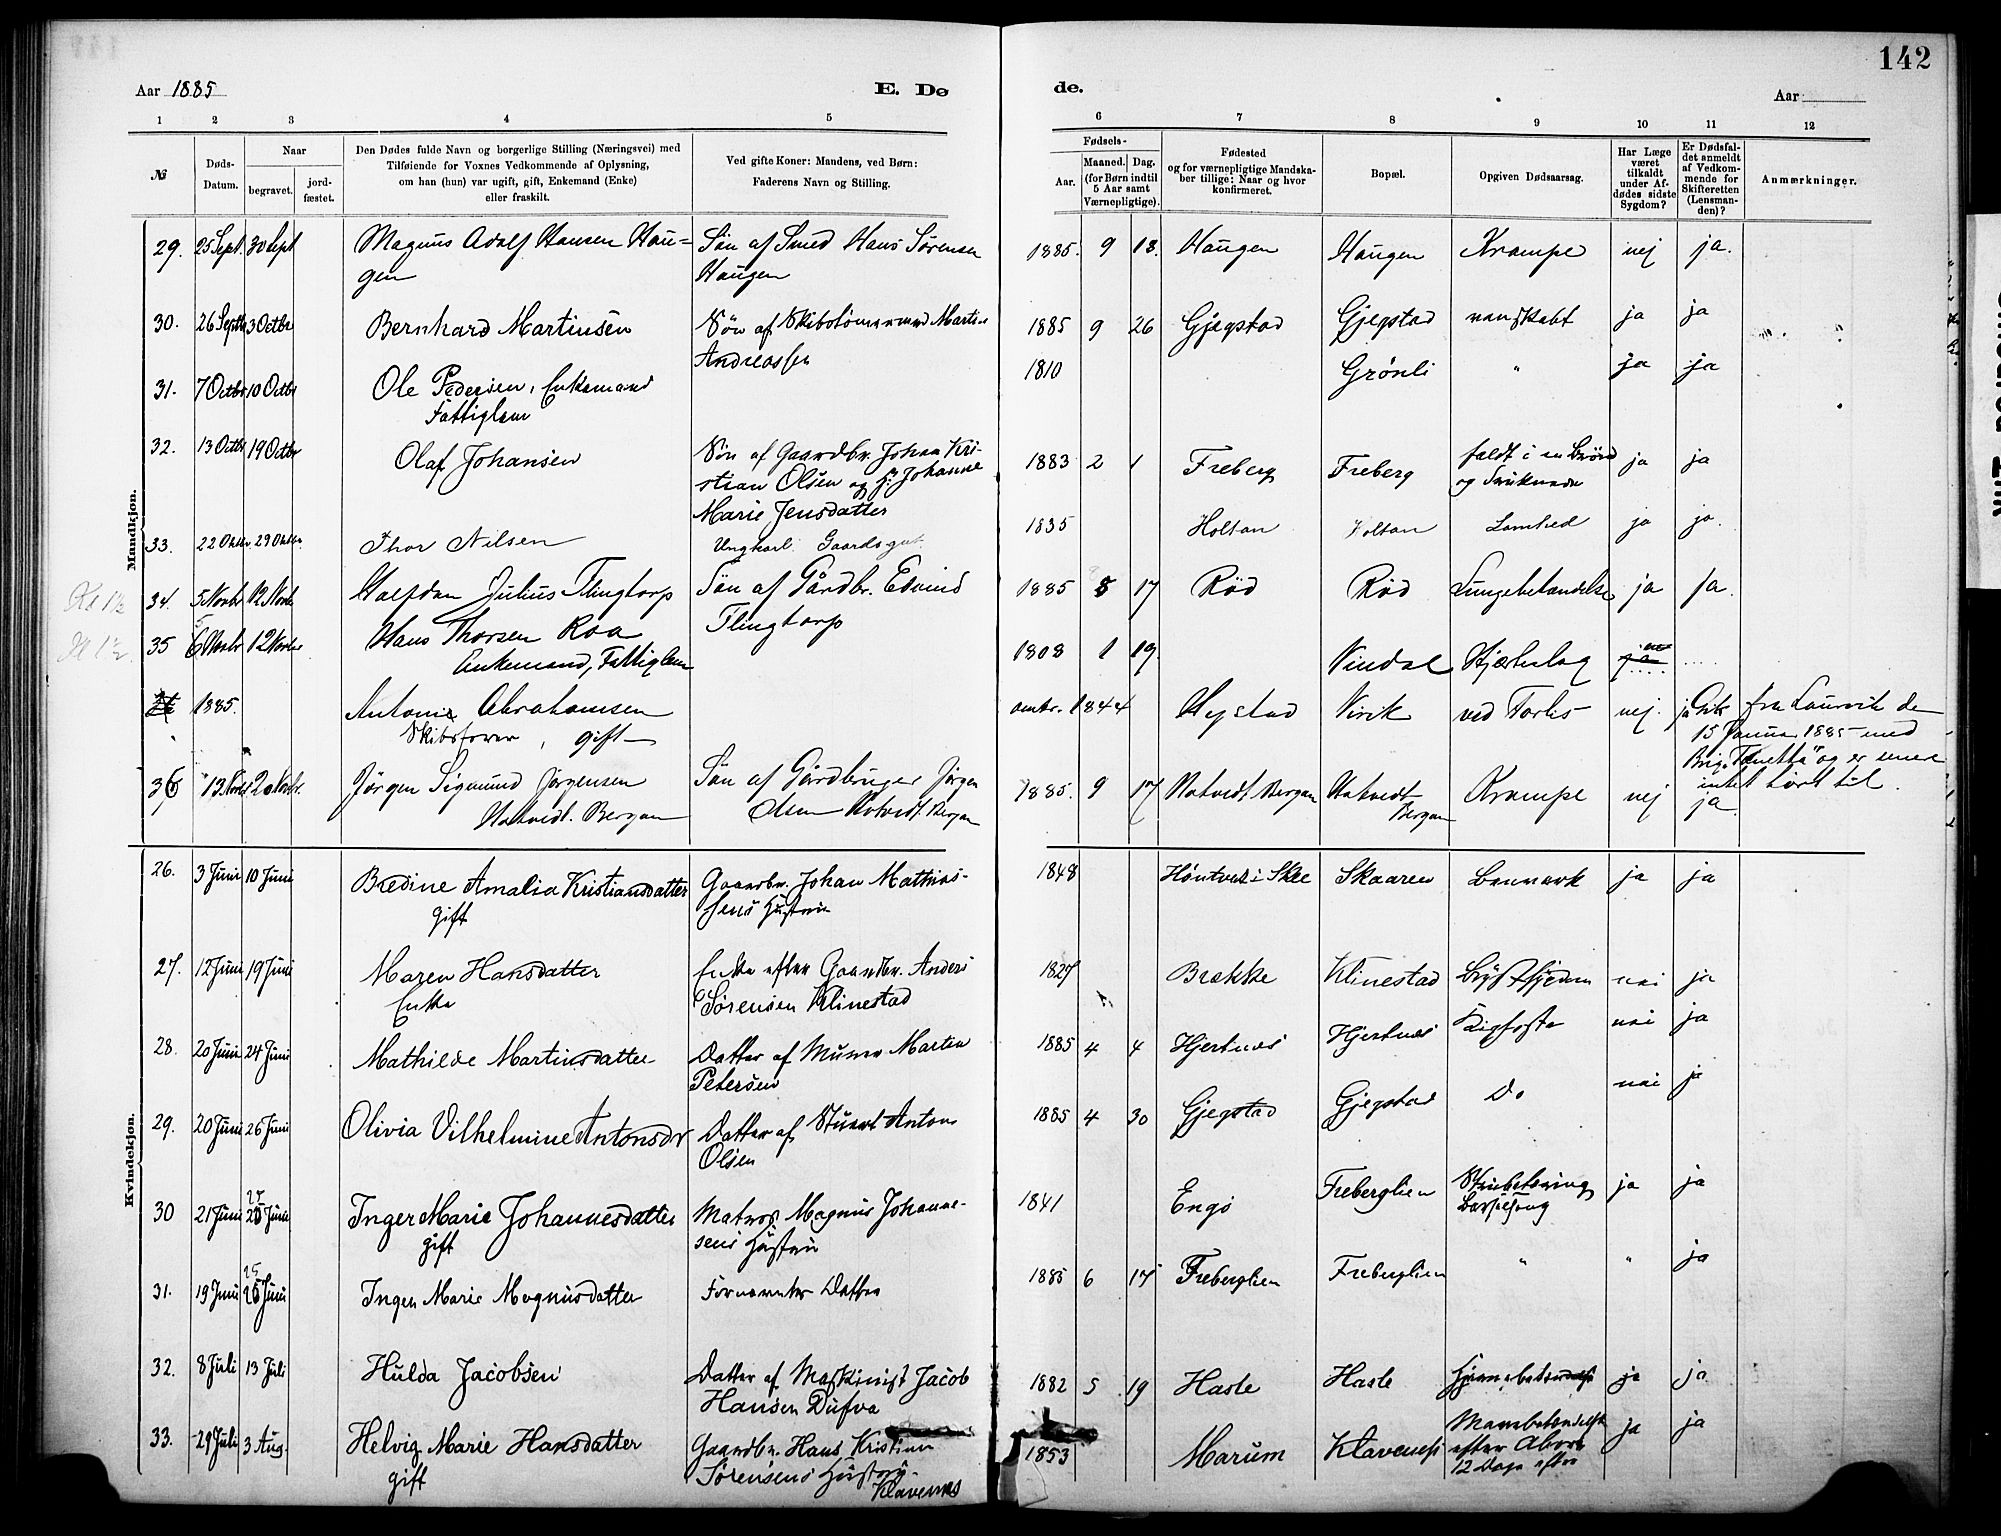 142
Aar 1885
E. Dø
de.
Aar
1 2 3 4 5 6 7 8 9 10 11 12
№
Døds-
Datum.
Naar
begravet.
jord-
fæstet.
Den Dødes fulde Navn og borgerlige Stilling (Næringsvei) med
Tilføiende for Voxnes Vedkommende af Oplysning,
om han (hun) var ugift, gift, Enkemand (Enke)
eller fraskilt.
Ved gifte Koner: Mandens, ved Børn:
Faderens Navn og Stilling.
Fødsels-
Aar.
Maaned. Dag.
(for Børn indtil
5 Aar samt
Værnepligtige).
Fødested
og for værnepligtige Mandska-
ber tillige: Naar og hvor
konfirmeret.
Bopæl.
Opgiven Dødsaarsag.
Har Læge
været
tilkaldt
under Af-
dødes sidste
Sygdom?
Er Dødsfal-
det anmeldt
af Vedkom-
mende for
Skifteretten
(Lensman-
den)?
Anmærkninger.
Mandkjøn.
29. 25 Sept. 30 Sept Magnus Adolf Hansen Hau- Søn af Smed Hans Sørensen 1885. 9 13. Haugen Haugen Krampe nej ja.
gen Haugen
30. 26 Septb 3 Octbr Bernhard Martinsen Søn af 1885 9 26 Gjegstad Gjegstad ja ja
Andreassen
31. 7 Octbr 10 Octbr Ole Pedersen, Enkemand 1810 Grønli " ja ja
Fattiglem
32. 13 Octbr 19 Octbr Olaf Johansen Søn af Gaardbr. Johan Kri- 1883 2 1 Freberg Freberg faldt i en Brønd ja ja
stian Olsen og H. Johanne og druknede
Marie Jensdatter
33. 22 Oktbr. 29 Oktbr. Thor Nilsen Ungkarl 1835 Holtan Holtan ja ja.
34. 5 Novbr 12 Novbr Halfdan Julius Flingtorp Søn af Gårdbr. Edvind 1885 8 17 Rød Rød Lungebetændelse ja ja.
Flingtorp
35 6 Novbr 12 Novbr Hans Thorsen Roa 1808 1 19. Vindal Hjerteslag
Enkemand, Fattiglem
1885. Antoni Abrahamsen omtr. 1844 Hystad Virik ved Forlis nej. ja Gik fra Laurvik den
Skibsfører, gift 15 Januar 1885 med
Brig "Fanetta" og er senere
intet hørt til.
36 13 Novbr 20 Novbr. Jørgen Sigmund Jørgensen Søn af Gårdbruger Jørgen 1885. 9 17 Hotvedt Bergan Hotvedt Krampe nej ja.
Hotvedt. Bergan Olsen Hotvedt. Bergan Bergan
Kvindekjøn.
26. 3 Juni 10 Juni Bredine Amalia Kristiansdatter Gaardbr. Johan Mathias- 1848 Høntvedt i Skee Skaaren ja ja
gift sens Hustru
27. 12 Juni 19 Juni Maren Hansdatter Enke efter Gaardbr. Anders 1827 Brække Klinestad nei ja
Enke Sørensen Klinestad
28. 20 Juni 24 Juni Mathilde Martinsdatter Datter af Murer Martin 1885 4 4 Hjertnæs Hjertnæs Kighoste nei ja
Petersen
29. 20 Juni 26 Juni Olivia Vilhelmine Antonsdr Datter af Stuert Anton 1885 4 30 Gjegstad Gjegstad Do nei ja
Olsen
30 21 Juni 25 Juni Inger Marie Johannesdatter Matros Magnus Johanne- 1841 Engø Freberglien Strubetæring ja ja
gift sens Hustru
31. 19 Juni 25 Juni Inger Marie Magnusdatter Fornævntes Datter 1885 6 17 Freberglien Freberglien " " ja
32. 8 Juli 13 Juli Hulda Jacobsen Datter af Maskinist Jacob 1882 5 19 Hasle Hasle Hjernebetændelse ja ja.
Hansen Dufva
33. 29 Juli 3 Aug. Helvig Marie Hansdatter Gaardbr. Hans Kristian 1853 Marum Klavenæs Mavebetændelse ja ja
gift Sørensens Hustru. efter Abort
Klavenæs 12 Dage efter